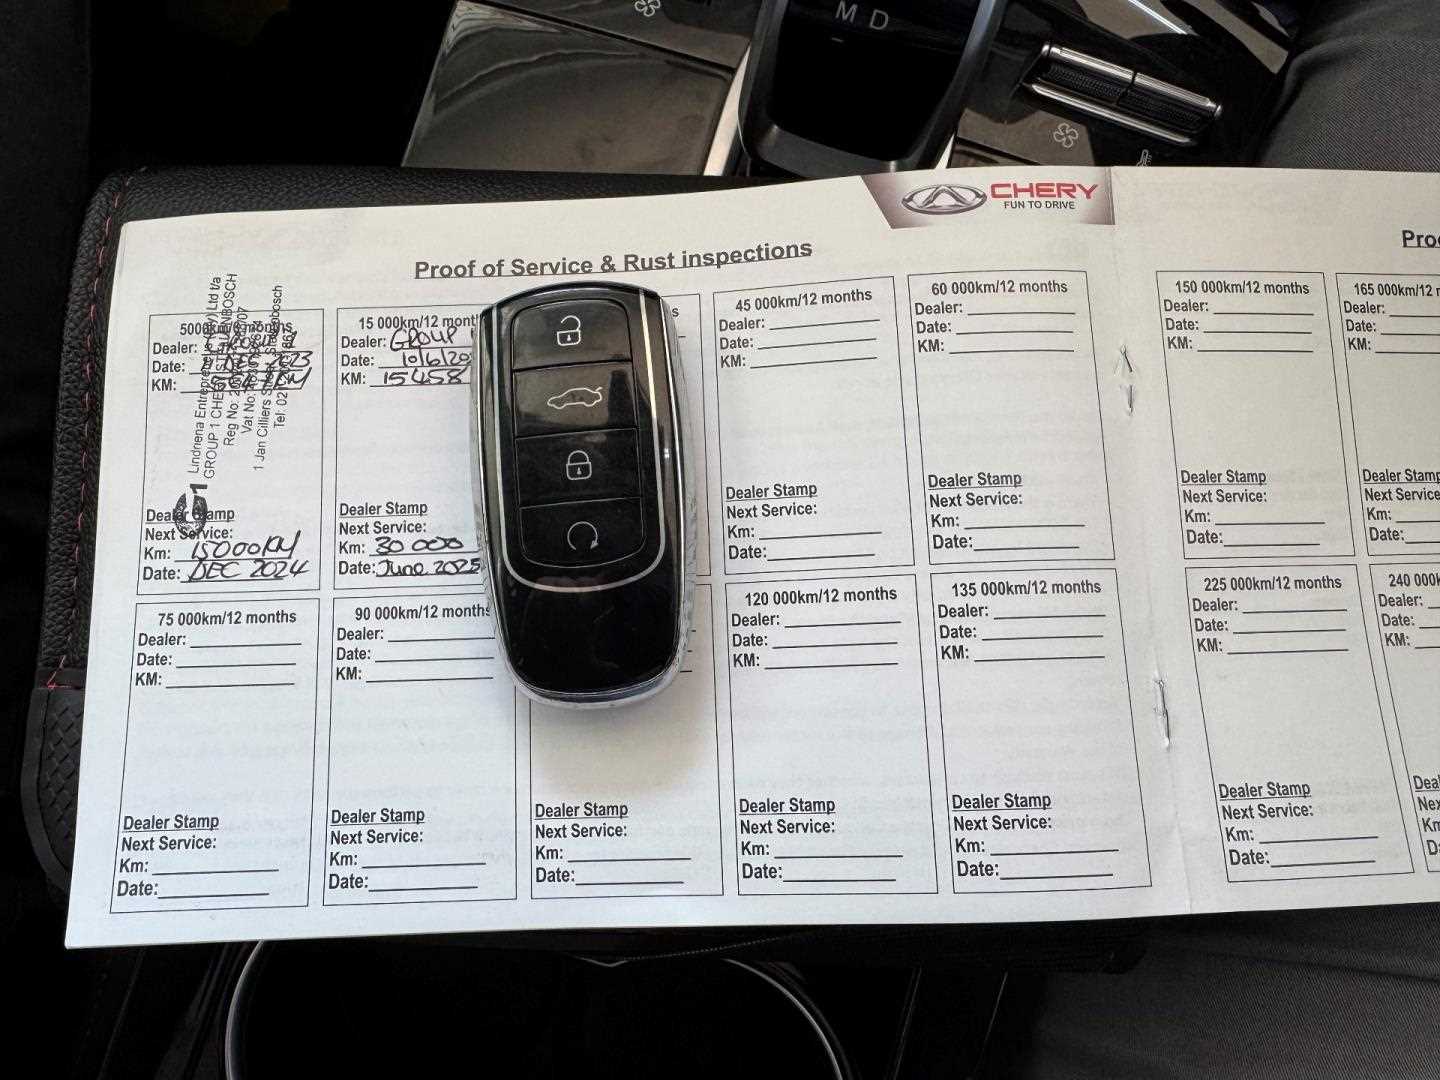 M D
CHERY
FUN TO DRIVE
Proof of Service & Rust inspections
5000km/6 months
Dealer:
Date:
KM:
Lindriena Entreprene (Pty) Ltd t/a
GROUP 1 CHERY STELLENBOSCH
Reg No:
Vat No:
1 Jan Cilliers Stellenbosch
Tel:
Dealer Stamp
Next Service:
Km: 15000KM
Date: DEC 2024
15 000km/12 months
Dealer: GROUP
Date: 10/6/20
KM: 15458
Dealer Stamp
Next Service:
Km: 30 000
Date: June. 2025
45 000km/12 months
Dealer:
Date:
KM:
Dealer Stamp
Next Service:
Km:
Date:
60 000km/12 months
Dealer:
Date:
KM:
Dealer Stamp
Next Service:
Km:
Date:
75 000km/12 months
Dealer:
Date:
KM:
Dealer Stamp
Next Service:
Km:
Date:
90 000km/12 months
Dealer:
Date:
KM:
Dealer Stamp
Next Service:
Km:
Date:
Dealer Stamp
Next Service:
Km:
Date:
120 000km/12 months
Dealer:
Date:
KM:
Dealer Stamp
Next Service:
Km:
Date:
135 000km/12 months
Dealer:
Date:
KM:
Dealer Stamp
Next Service:
Km:
Date:
Pro
150 000km/12 months
Dealer:
Date:
KM:
Dealer Stamp
Next Service:
Km:
Date:
165 000km/12 m
Dealer:
Date:
KM:
Dealer Stam
Next Service
Km:
Date:
225 000km/12 months
Dealer:
Date:
KM:
Dealer Stamp
Next Service:
Km:
Date:
240 000k
Dealer:
Date:
KM: